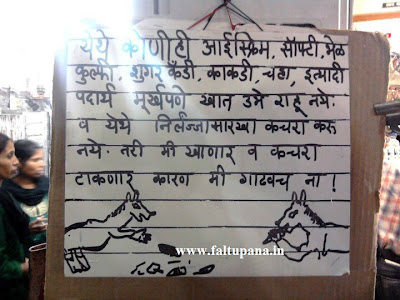 येथे कोणीही आईस्क्रिम, सॉफ्टी, भेळ
कुल्फी, शुगर कँडी, काकडी, चहा, इत्यादी
पदार्थ मूर्खपणे खात उभे राहू नये.
व येथे निर्लज्जासारखा कचरा करू
नये. तरी मी खाणार व कचरा
टाकणार कारण मी गाढवच ना!
www.faltupana.in